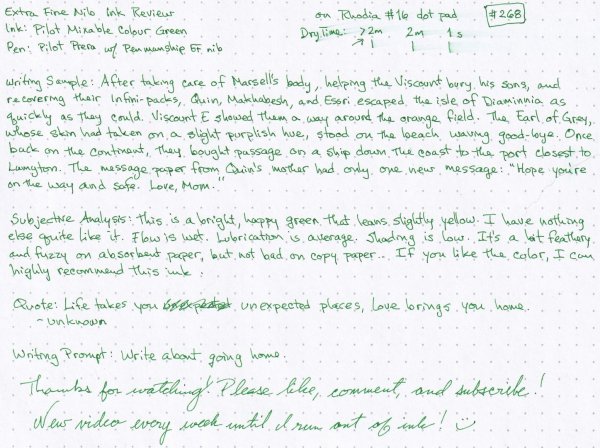 Extra Fine Nib, Ink Review on Rhodia #16 dot pad #268
Ink: Pilot Mixable Colour Green Dry Time: >2m 2m 1s
Pen: Pilot Prera w/ Penmanship EF nib
Writing Sample: After taking care of Marsell's body, helping the Viscount bury his sons, and
recovering their infini-packs, Quin, Makhabesh, and Essri escaped the isle of Diaminnia as
quickly as they could. Viscount E showed them a way around the orange field. The Earl of Grey,
whose skin had taken on a slight purplish hue, stood on the beach waving good-bye. Once
back on the continent, they bought passage on a ship down the coast to the port closest to
Lamyton. The message paper from Quin's mother had only one new message: "Hope you're
on the way and safe. Love, Mom."
Subjective Analysis: This is a bright, happy green that leans slightly yellow. I have nothing
else quite like it. Flow is wet. Lubrication is average. Shading is low. It's a bit feathery
and fuzzy on absorbent paper, but not bad on copy paper... If you like the color, I can
highly recommend this ink.
Quote: Life takes you unexpected places, love brings you home.
~unknown
Writing Prompt: Write about going home.
Thanks for watching! Please like, comment, and subscribe!
New video every week until I run out of ink! :)